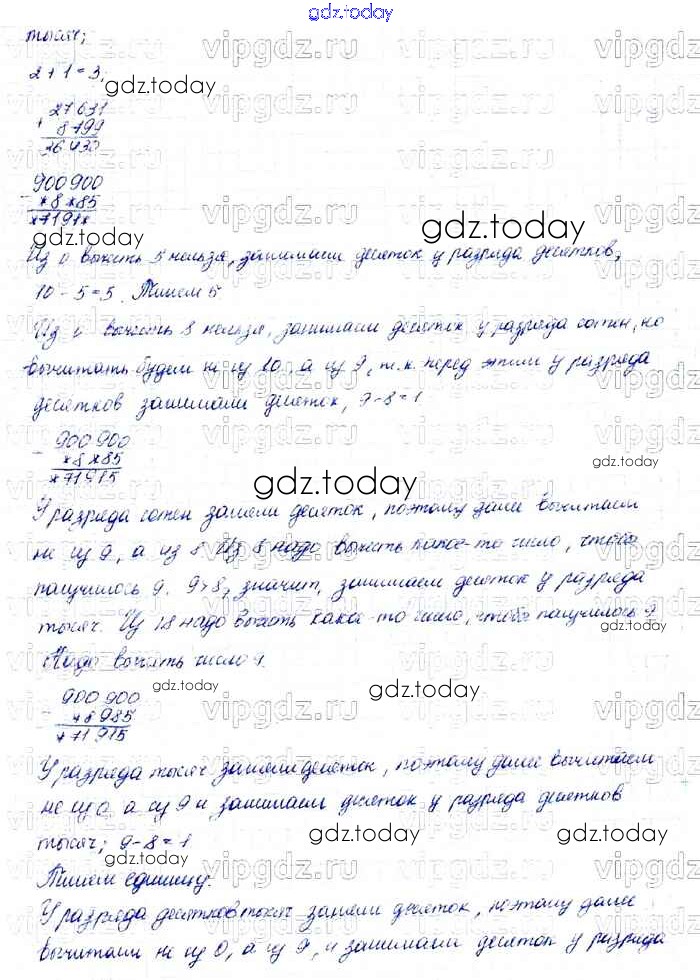 gdz.today
тысяч;
2 + 1 = 3;
27631
+
8799
*6430
900 900
-
*8 *85
*7191*
Из 0 вычесть 5 нельзя, занимаем десяток у разряда десятков,
10 - 5 = 5. Пишем 5
Из 0 вычесть 8 нельзя, занимаем десяток у разряда сотен, но
вычитать будем не из 10, а из 9, т.к. перед этим у разряда
десятков занимали десяток, 9 - 8 = 1
900 900
-
*8 *85
*71915
У разряда сотен заняли десяток, поэтому далее вычитаем
не из 9, а из 8. Из 8 надо вычесть какое-то число, чтобы
получилось 9. 9 > 8, значит, занимаем десяток у разряда
тысяч. Из 18 надо вычесть како-то число, чтобы получилось 9.
Надо вычесть число 9.
900 900
-
*8 985
*71 915
У разряда тысяч заняли десяток, поэтому далее вычитаем
не из 0, а из 9 и занимаем десяток у разряда десятков
тысяч; 9 - 8 = 1
Пишем единицу.
У разряда десятков тысяч заняли десяток, поэтому далее
вычитаем не из 0, а из 9, и занимаем десяток у разряда